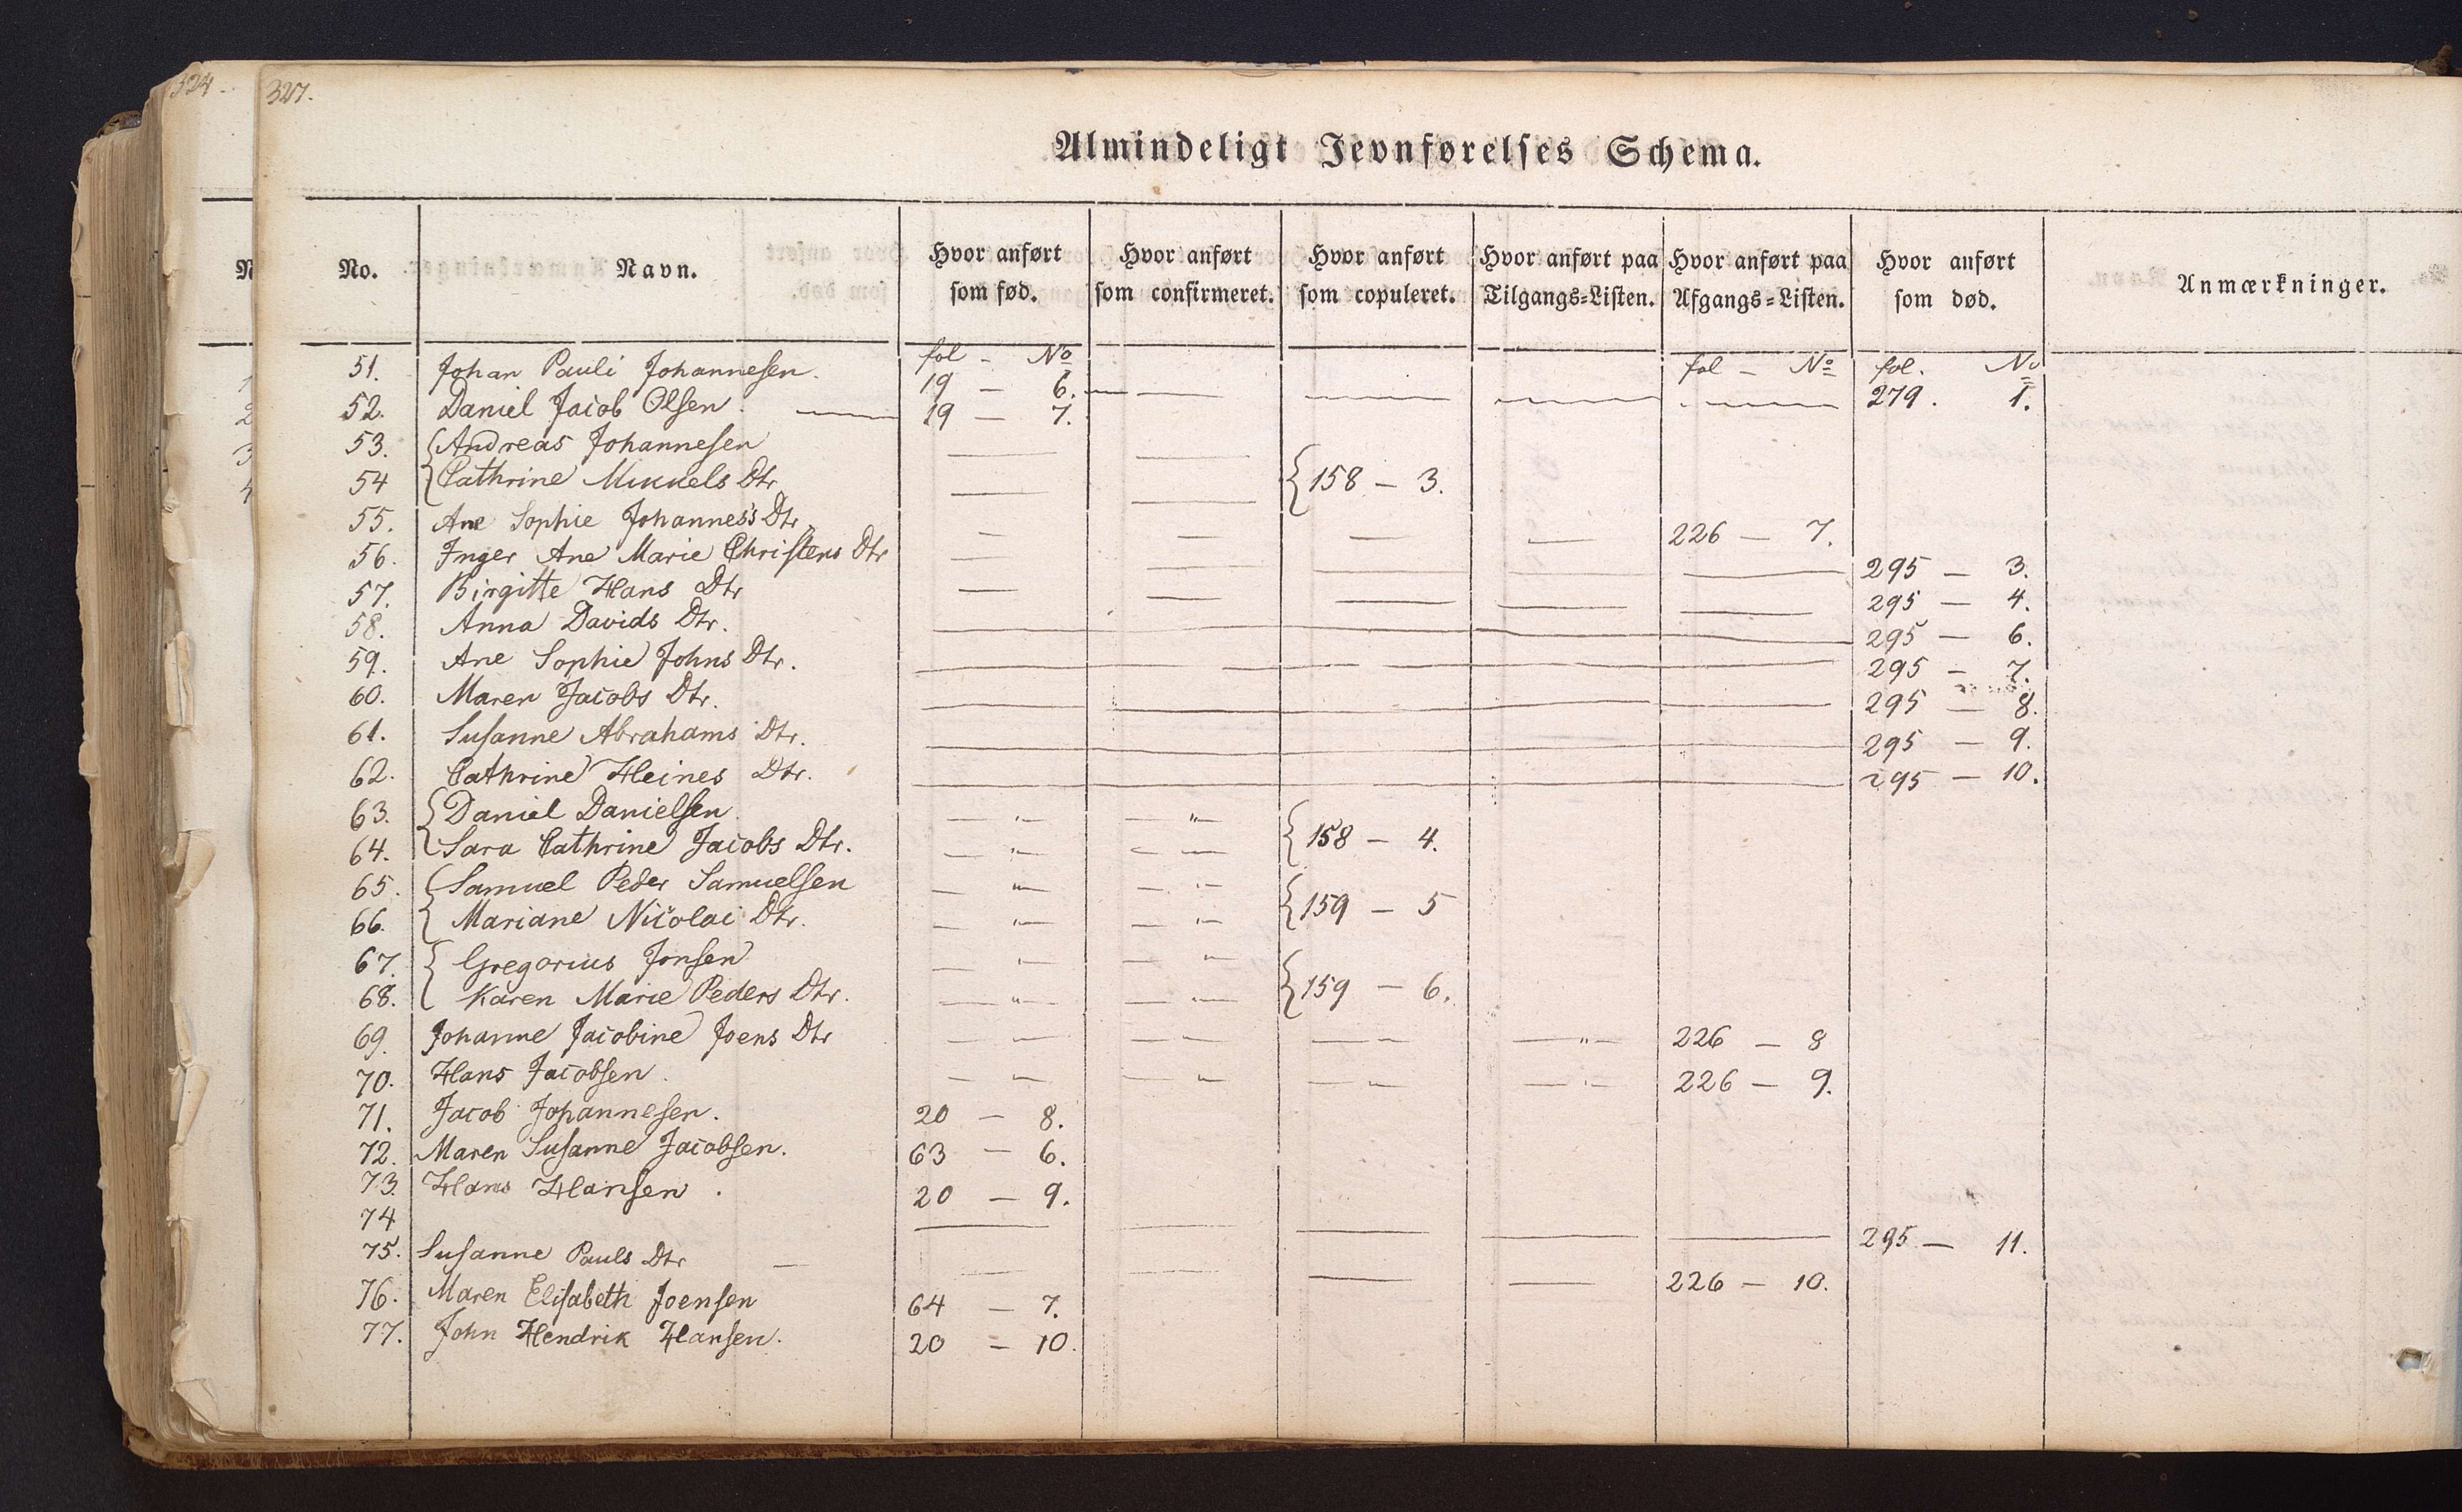 324.
327.
Almindeligt Jevnførelses Schema.
No. Navn. Hvor anført som fød. Hvor anført som confirmeret. Hvor anført som copuleret. Hvor anført paa Tilgangs-Listen. Hvor anført paa Afgangs-Listen. Hvor anført som død. Anmærkninger.
fol - No fol - No fol. No
51. Johan Pauli Johannesen. 19 - 6. 279. 1.
52. Daniel Jacob Olsen. 19 - 7.
53. Andreas Johannesen
54 Cathrine Mikkels Dtr 158 - 3.
55. Ane Sophie Johannes's Dtr 226 - 7.
56. Inger Ane Marie Christens Dtr 295 - 3.
57. Birgitte Hans Dtr 295 - 4.
58. Anna Davids Dtr. 295 - 6.
59. Ane Sophie Johns Dtr. 295 - 7.
60. Maren Jacobs Dtr. 295 - 8.
61. Susanne Abrahams Dtr. 295 - 9.
62. Cathrine Heines Dtr. 295 - 10.
63. Daniel Danielsen.
64. Sara Cathrine Jacobs Dtr. 158 - 4.
65. Samuel Peder Samuelsen
66. Mariane Nicolai Dtr. 159 - 5
67. Gregorius Jonsen
68. Karen Marie Peders Dtr. 159 - 6.
69. Johanne Jacobine Joens Dtr 226 - 8
70. Hans Jacobsen. 226 - 9.
71. Jacob Johannesen. 20 - 8.
72. Maren Susanne Jacobsen. 63 - 6.
73. Hans Hansen. 20 - 9.
74 295 - 11.
75. Susanne Pauls Dtr - 226 - 10.
76. Maren Elisabeth Joensen 64 - 7.
77. John Hendrik Hansen. 20 - 10.